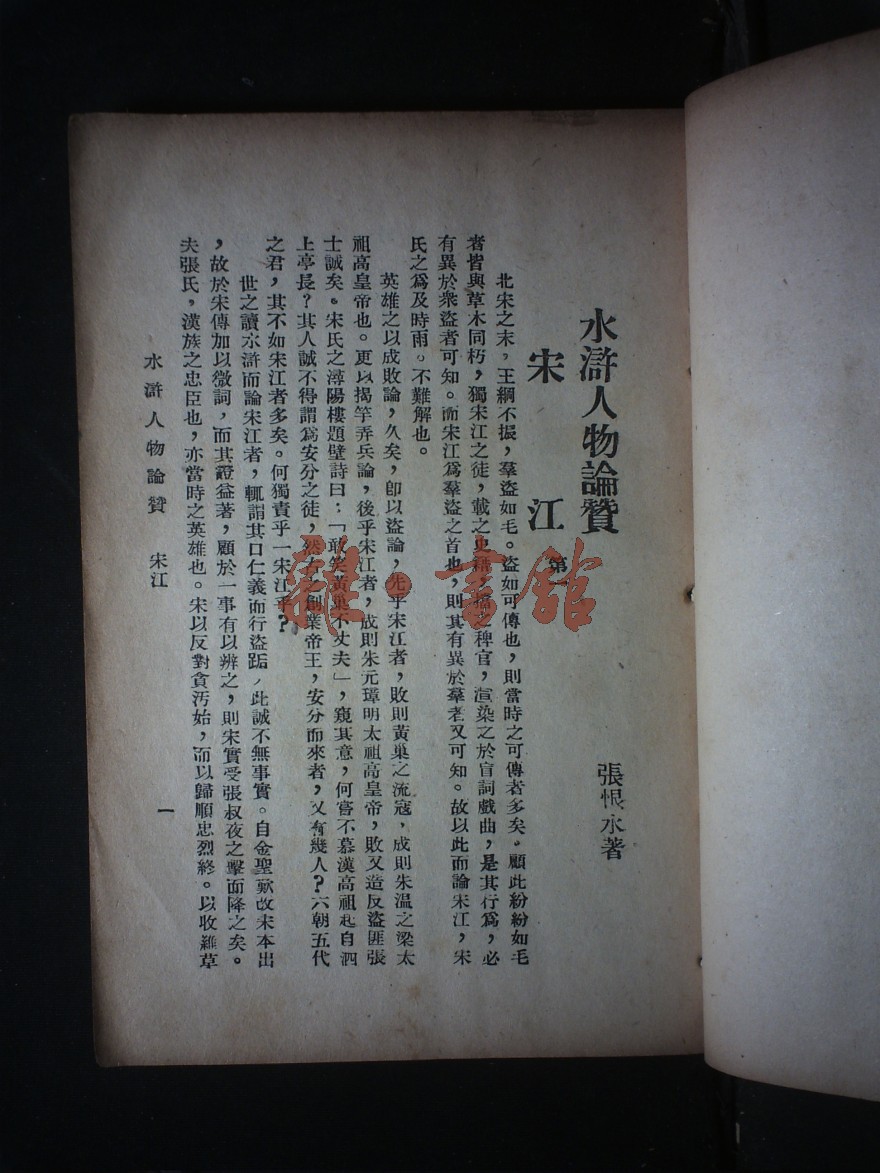 水滸人物論贊
宋 江 第一
張恨水著
北宋之末，王綱不振，羣盜如毛。盜如可傳也，則當時之可傳者多矣。顧此紛紛如毛
者皆與草木同朽，獨宋江之徒，載之史籍，播之稗官，渲染之於盲詞戲曲，是其行爲，必
有異於衆盜者可知。而宋江爲羣盜之首也，則其有異於羣者又可知。故以此而論宋江，宋
氏之爲及時雨。不難解也。
英雄之以成敗論，久矣，卽以盜論，先乎宋江者，敗則黃巢之流寇，成則朱溫之梁太
祖高皇帝也。更以揭竿弄兵論，後乎宋江者，成則朱元璋明太祖高皇帝，敗又造反盜匪張
士誠矣。宋氏之潯陽樓題壁詩曰：「敢笑黃巢不丈夫」，窺其意，何嘗不慕漢高祖起自泗
上亭長？其人誠不得謂爲安分之徒，然古之創業帝王，安分而來者，又有幾人？六朝五代
之君，其不如宋江者多矣。何獨責乎一宋江乎？
世之讀水滸而論宋江者，輒謂其口仁義而行盜跖，此誠不無事實。自金聖歎改宋本出
，故於宋傳加以微詞，而其證益著，顧於一事有以辨之，則宋實受張叔夜之擊而降之矣。
夫張氏，漢族之忠臣也，亦當時之英雄也。宋以反對貪汚始，而以歸順忠烈終。以收羅草
水滸人物論贊 宋江
一
雜·書館